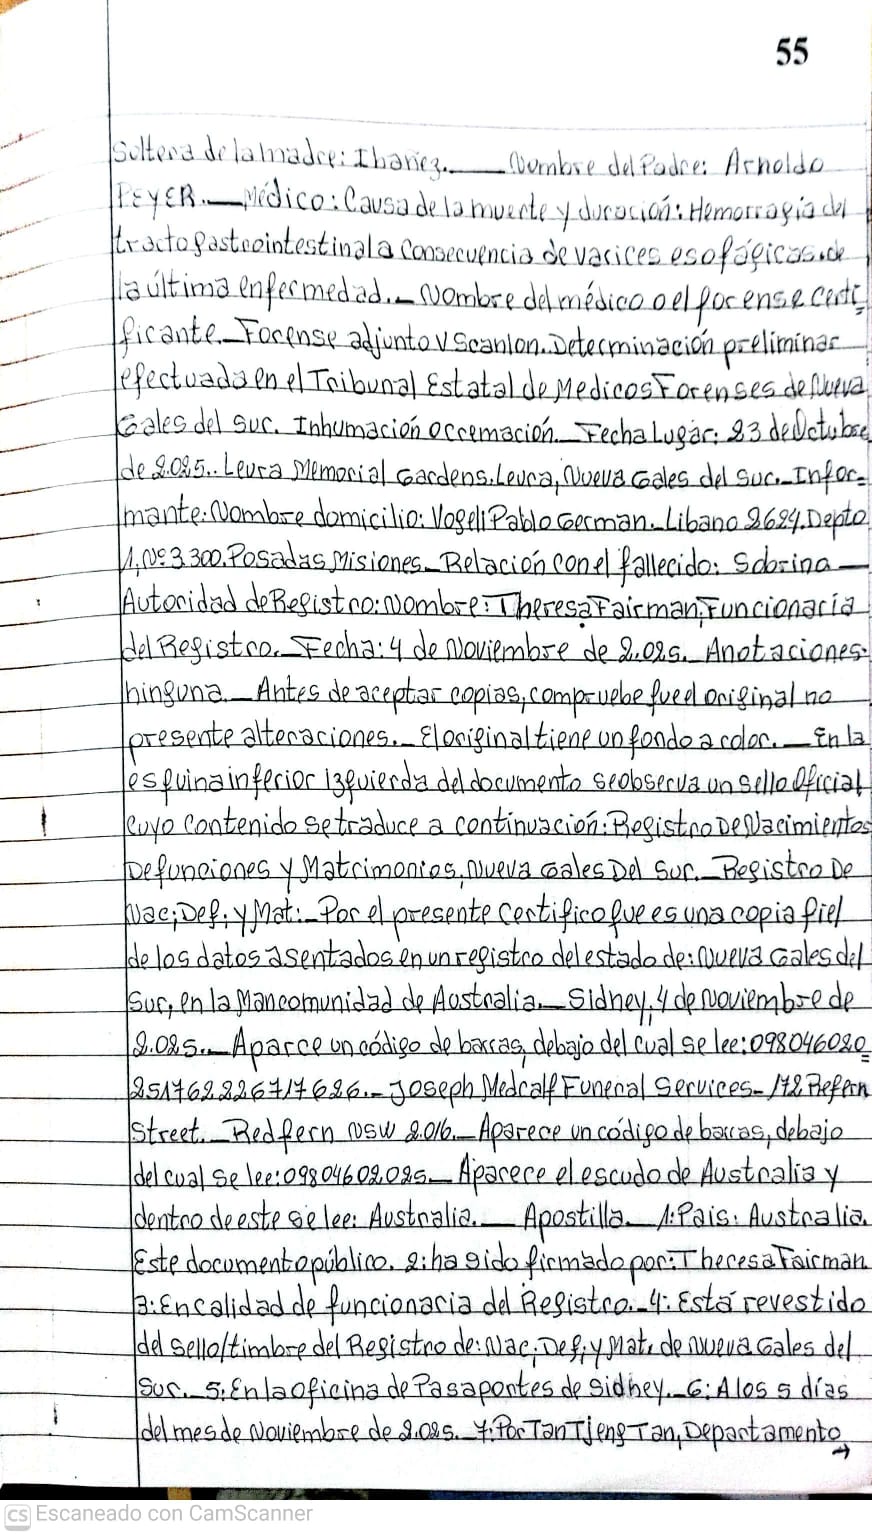 55
Soltera de la madre: Ibañez.___ Nombre del Padre: Arnoldo
PEYER.__ Médico: Causa de la muerte y duración: Hemorragia del
tracto gastrointestinal a consecuencia de varices esofágicas.de
la última enfermedad._ Nombre del médico o el forense certi=
ficante._ Forense adjunto V Scanlon. Determinación preliminar
efectuada en el Tribunal Estatal de Medicos Forenses de Nueva
Gales del Sur. Inhumación o cremación._ Fecha Lugar: 23 de Octubre
de 2.025.. Leura Memorial Gardens. Leura, Nueva Gales del Sur._ Infor=
mante: Nombre domicilio: Vogeli Pablo German._ Libano 2624. Depto
1, Nº 3.300. Posadas Misiones._ Relación con el fallecido: Sobrina __
Autoridad de Registro: Nombre: Theresa Fairman, Funcionaria
del Registro._ Fecha: 4 de Noviembre de 2.025._ Anotaciones:
ninguna._ Antes de aceptar copias, compruebe que el original no
presente alteraciones._ El original tiene un fondo a color.__ En la
esquina inferior izquierda del documento se observa un sello Oficial
cuyo contenido se traduce a continuación: Registro De Nacimientos
Defunciones y Matrimonios, Nueva Gales Del Sur._ Registro De
Nac; Def; y Mat:_ Por el presente certifico que es una copia fiel
de los datos asentados en un registro del estado de: Nueva Gales del
Sur, en la Mancomunidad de Australia._ Sidney, 4 de Noviembre de
2.025._ Aparce un código de barras, debajo del cual se lee: 098046020=
251762226717626._ Joseph Medcalf Funeral Services- 172 Refern
Street._ Redfern NSW 2.016._ Aparece un código de barras, debajo
del cual se lee: 09804602025._ Aparece el escudo de Australia y
dentro de este se lee: Australia.__ Apostilla._ 1: Pais: Australia.
Este documento público. 2: ha sido firmado por: Theresa Fairman
3: En calidad de funcionaria del Registro._ 4: Está revestido
del sello/timbre del Registro de: Nac; Def; y Mat. de Nueva Gales del
Sur._ 5: En la oficina de Pasaportes de Sidney._ 6: A los 5 días
del mes de Noviembre de 2.025. 7: Por Tan Tjeng Tan, Departamento
→
CS Escaneado con CamScanner